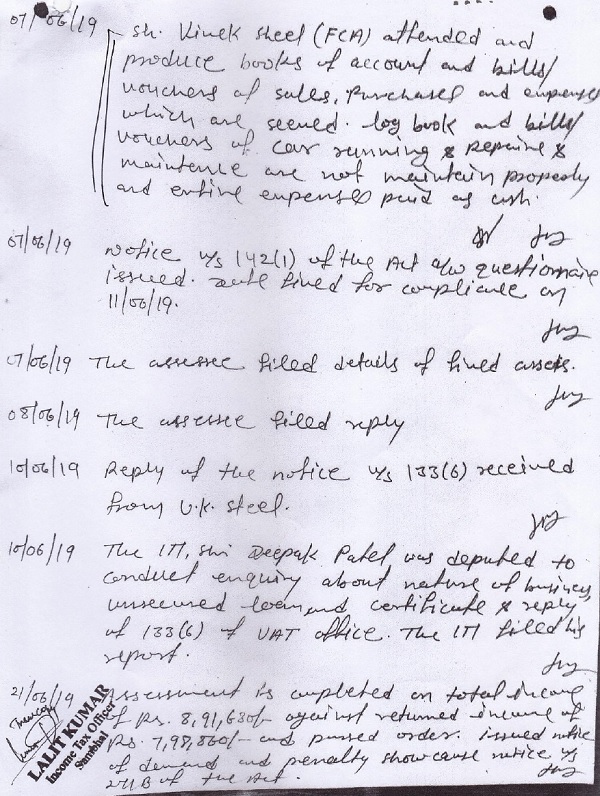 07/06/19 - Sh. Vivek sheel (FCA) attended and
produce books of account and bills/
vouchers of sales, purchases and expenses
which are seened. log book and bills/
vouchers of car running & repairing &
maintence are not maintain properly
and entire expenses paid as cash.
07/06/19 Notice u/s 142(1) of the Act a/w questionnaire
issued. Date fixed for compliance on
11/06/19.
07/06/19 The assessee filled details of fixed assets.
08/06/19 The assessee filled reply
10/06/19 Reply of the notice u/s 133(6) received
from U.K. steel.
10/06/19 The ITI, Shri Deepak Patel was deputed to
conduct enquiry about nature of business,
unsecured loan and certificate & reply
of 133(6) of VAT office. The ITI filled his
report.
21/06/19 Assessment is completed on total income
of Rs. 8,91,630/- against returned income of
Rs. 7,98,860/- and passed order. issued notice
of demand and penalty showcause notice u/s
271B of the Act.
LALIT KUMAR
Income Tax Officer
Sambhal